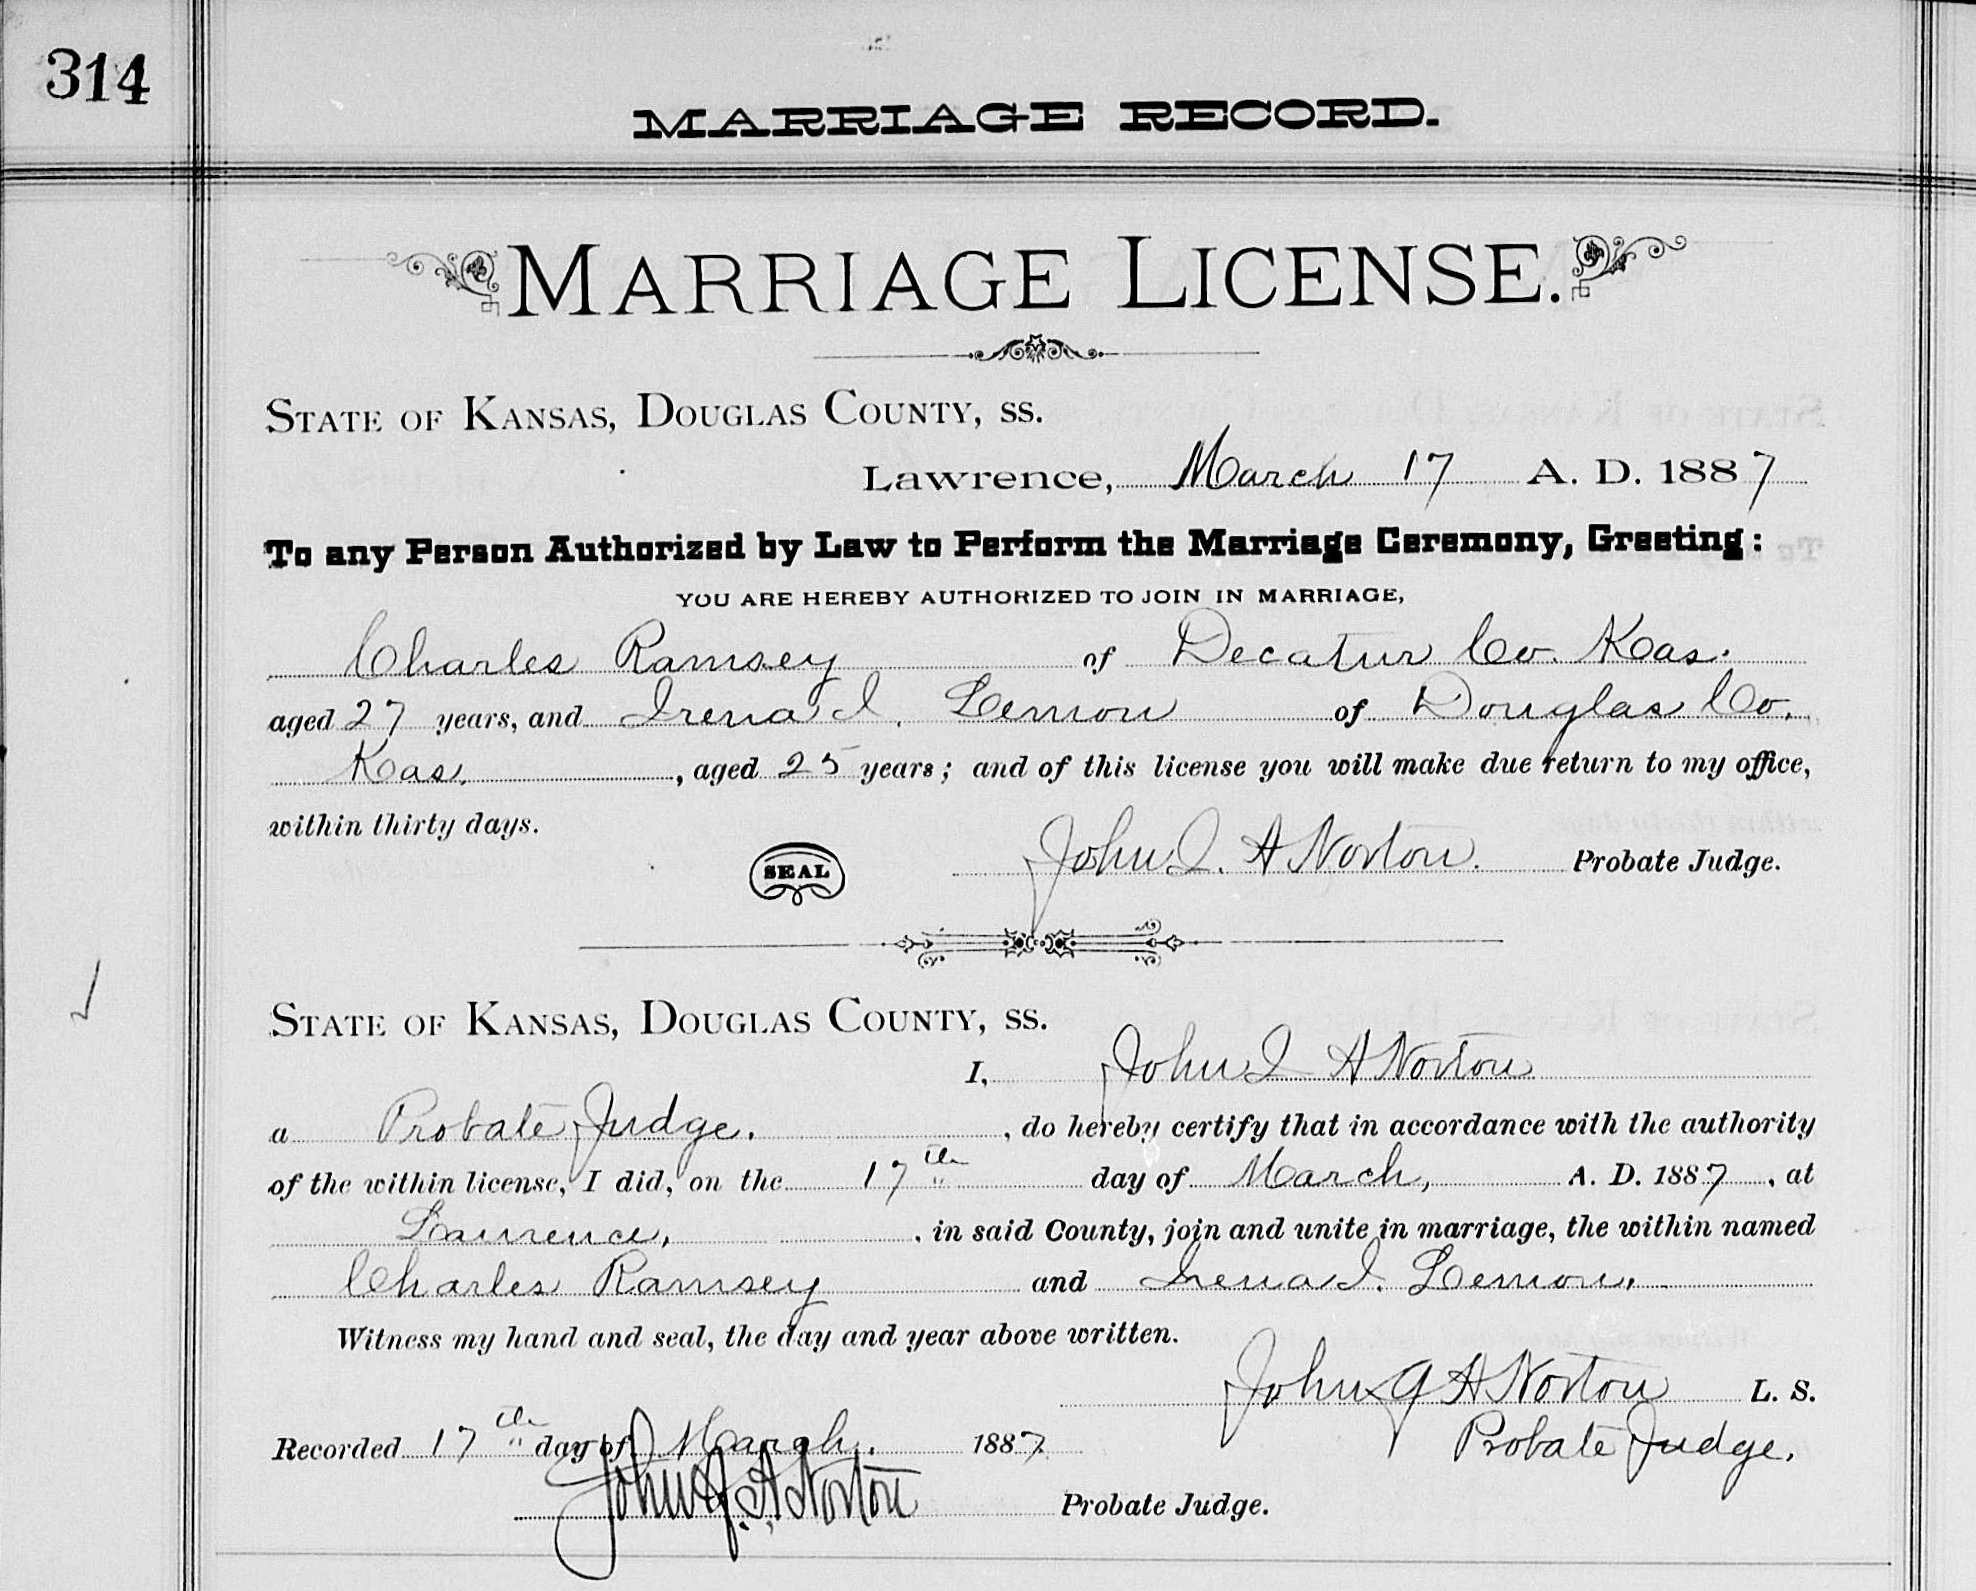 314
MARRIAGE RECORD.
MARRIAGE LICENSE.
STATE OF KANSAS, DOUGLAS COUNTY, SS.
Lawrence, March 17 A. D. 1887
To any Person Authorized by Law to Perform the Marriage Ceremony, Greeting:
YOU ARE HEREBY AUTHORIZED TO JOIN IN MARRIAGE,
Charles Ramsey of Decatur Co. Kas.
aged 27 years, and Irena I. Lemon of Douglas Co.
Kas. , aged 25 years; and of this license you will make due return to my office,
within thirty days.
SEAL John Q. A Norton. Probate Judge.
STATE OF KANSAS, DOUGLAS COUNTY, SS.
I, John Q A Norton
a Probate Judge. , do hereby certify that in accordance with the authority
of the within license, I did, on the 17th day of March, A. D. 1887 , at
Lawrence, , in said County, join and unite in marriage, the within named
Charles Ramsey and Irena I. Lemon.
Witness my hand and seal, the day and year above written.
John Q A Norton L. S.
Probate Judge.
Recorded 17th day of March. 1887.
John Q. A Norton Probate Judge.